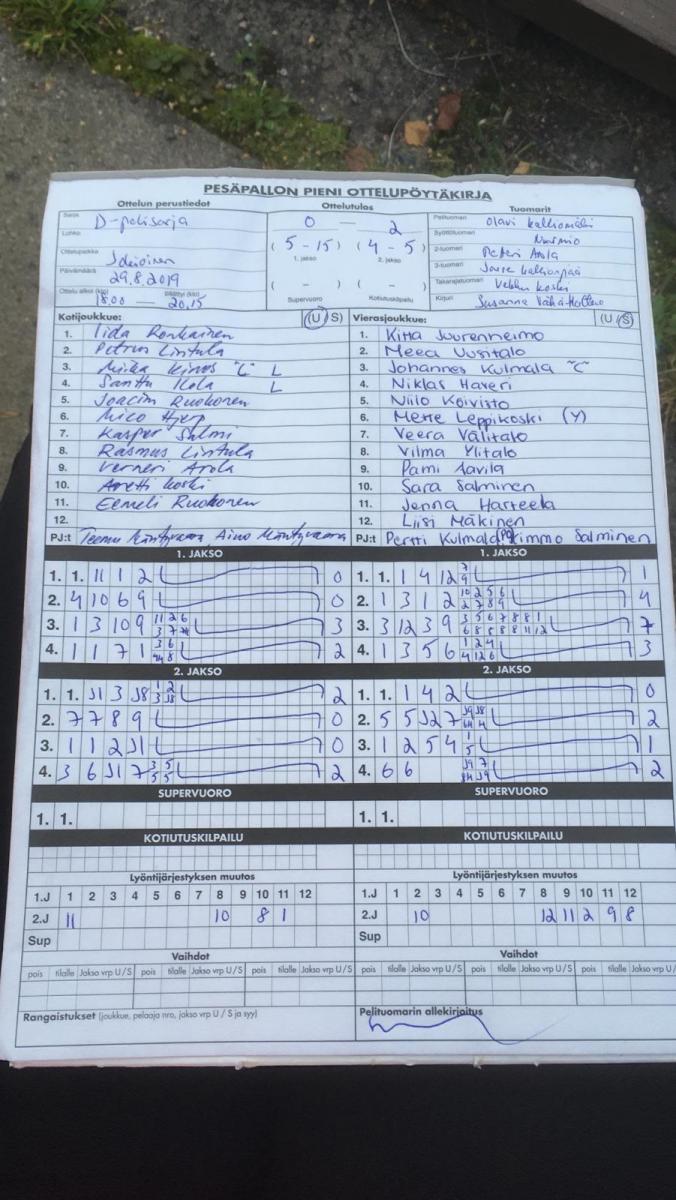 PESÄPALLON PIENI OTTELUPÖYTÄKIRJA
Ottelun perustiedot Ottelutulos Tuomarit
Sarja D-poikasarja 0 — 2 Pelituomari Olavi
Lohko (5 - 15) (4 - 5) Syöttötuomari Nurmio
Ottelupaikka Jokioinen 1. jakso 2. jakso 2-tuomari Petteri Arola
Päivämäärä 29.8.2019 ( - ) ( - ) 3-tuomari
Ottelu alkoi (klo) 18.00 — päättyi (klo) 20.15 Supervuoro Kotiutuskilpailu Takarajatuomari Koski
Kirjuri Susanna
Kotijoukkue: (U/S) Vierasjoukkue: (U/S)
1. Iida Ronkainen 1. Kitta Juurenheimo
2. Petrus Lintula 2. Meea Uusitalo
3. Miika "C" L 3. Johannes Kulmala "C"
4. Santtu L 4. Niklas Haveri
5. Joacim Ruokonen 5. Niilo Koivisto
6. Mico 6. Mette Leppikoski (Y)
7. Kasper Salmi 7. Veera Välitalo
8. Rasmus Lintula 8. Vilma Ylitalo
9. Verneri Arola 9. Pami Aavila
10. Anetti Koski 10. Sara Salminen
11. Eemeli Ruokonen 11. Jenna Harteela
12. 12. Liisi Mäkinen
PJ:t Teemu Mäntyvaara Aino Mäntyvaara PJ:t Pertti Kulmala Kimmo Salminen
1. JAKSO 1. JAKSO
1. 1. 11 1 2 0 1. 1. 1 4 12 7 9 1
2. 4 10 6 9 0 2. 1 3 1 2 4
3. 1 3 10 9 3 3. 3 12 3 9 7
4. 1 1 7 1 2 4. 1 3 5 6 3
2. JAKSO 2. JAKSO
1. 1. J1 3 J8 2 1. 1. 1 4 2 0
2. 7 7 8 9 0 2. 5 5 J2 7 2
3. 1 1 2 J1 0 3. 1 2 5 4 1 5 1
4. 3 6 J1 7 3 5 5 5 2 4. 6 6 2
SUPERVUORO SUPERVUORO
1. 1. 1. 1.
KOTIUTUSKILPAILU KOTIUTUSKILPAILU
Lyöntijärjestyksen muutos Lyöntijärjestyksen muutos
1.J 1 2 3 4 5 6 7 8 9 10 11 12 1.J 1 2 3 4 5 6 7 8 9 10 11 12
2.J 11 10 8 1 2.J 10 12 11 2 9 8
Sup Sup
Vaihdot Vaihdot
pois tilalle Jakso vrp U/S pois tilalle Jakso vrp U/S pois tilalle Jakso vrp U/S pois tilalle Jakso vrp U/S pois tilalle Jakso vrp U/S pois tilalle Jakso vrp U/
Rangaistukset (joukkue, pelaaja nro, jakso vrp U / S ja syy) Pelituomarin allekirjoitus